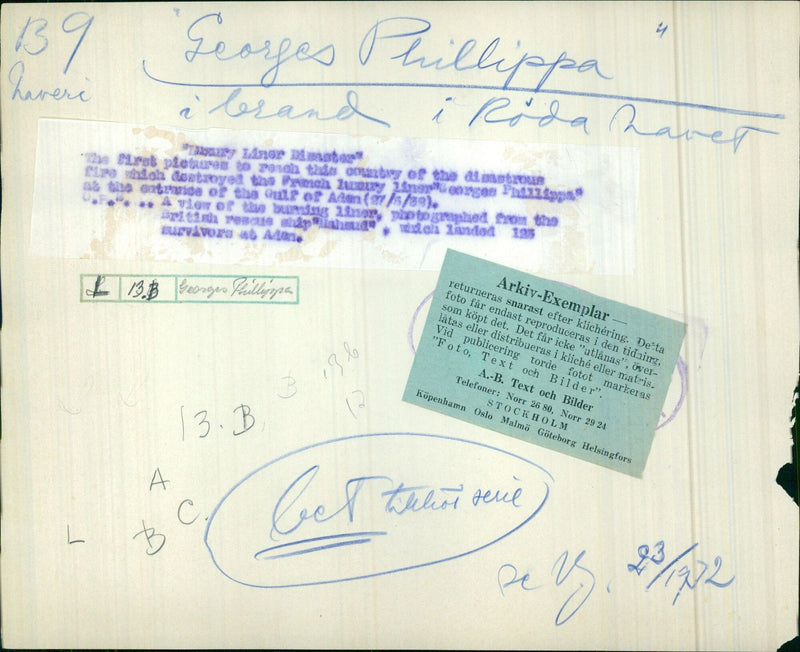 B 9
haveri
"Georges Phillippa"
i brand i Röda havet
"Luxury Liner Disaster"
The first pictures to reach this country of the disastrous
fire which destroyed the French luxury liner"Georges Phillippa"
at the entrance of the Gulf of Aden(27/5/32).
.. A view of the burning liner, photographed from the
British rescue ship"Mahsud", which landed 125
survivors at Aden.
L 13.B Georges Phillippa
Arkiv-Exemplar —
returneras snarast efter klichéring. Detta
foto får endast reproduceras i den tidning,
som köpt det. Det får icke "utlånas", över-
låtas eller distribueras i kliché eller matris-
Vid publicering torde fotot markeras
"Foto. Text och Bilder".
A.-B. Text och Bilder
Telefoner: Norr 26 80, Norr 29 24
STOCKHOLM
Köpenhamn Oslo Malmö Göteborg Helsingfors
B
13.B.
A
C.
L B
tillhör serie
se Vj. 23/12 32